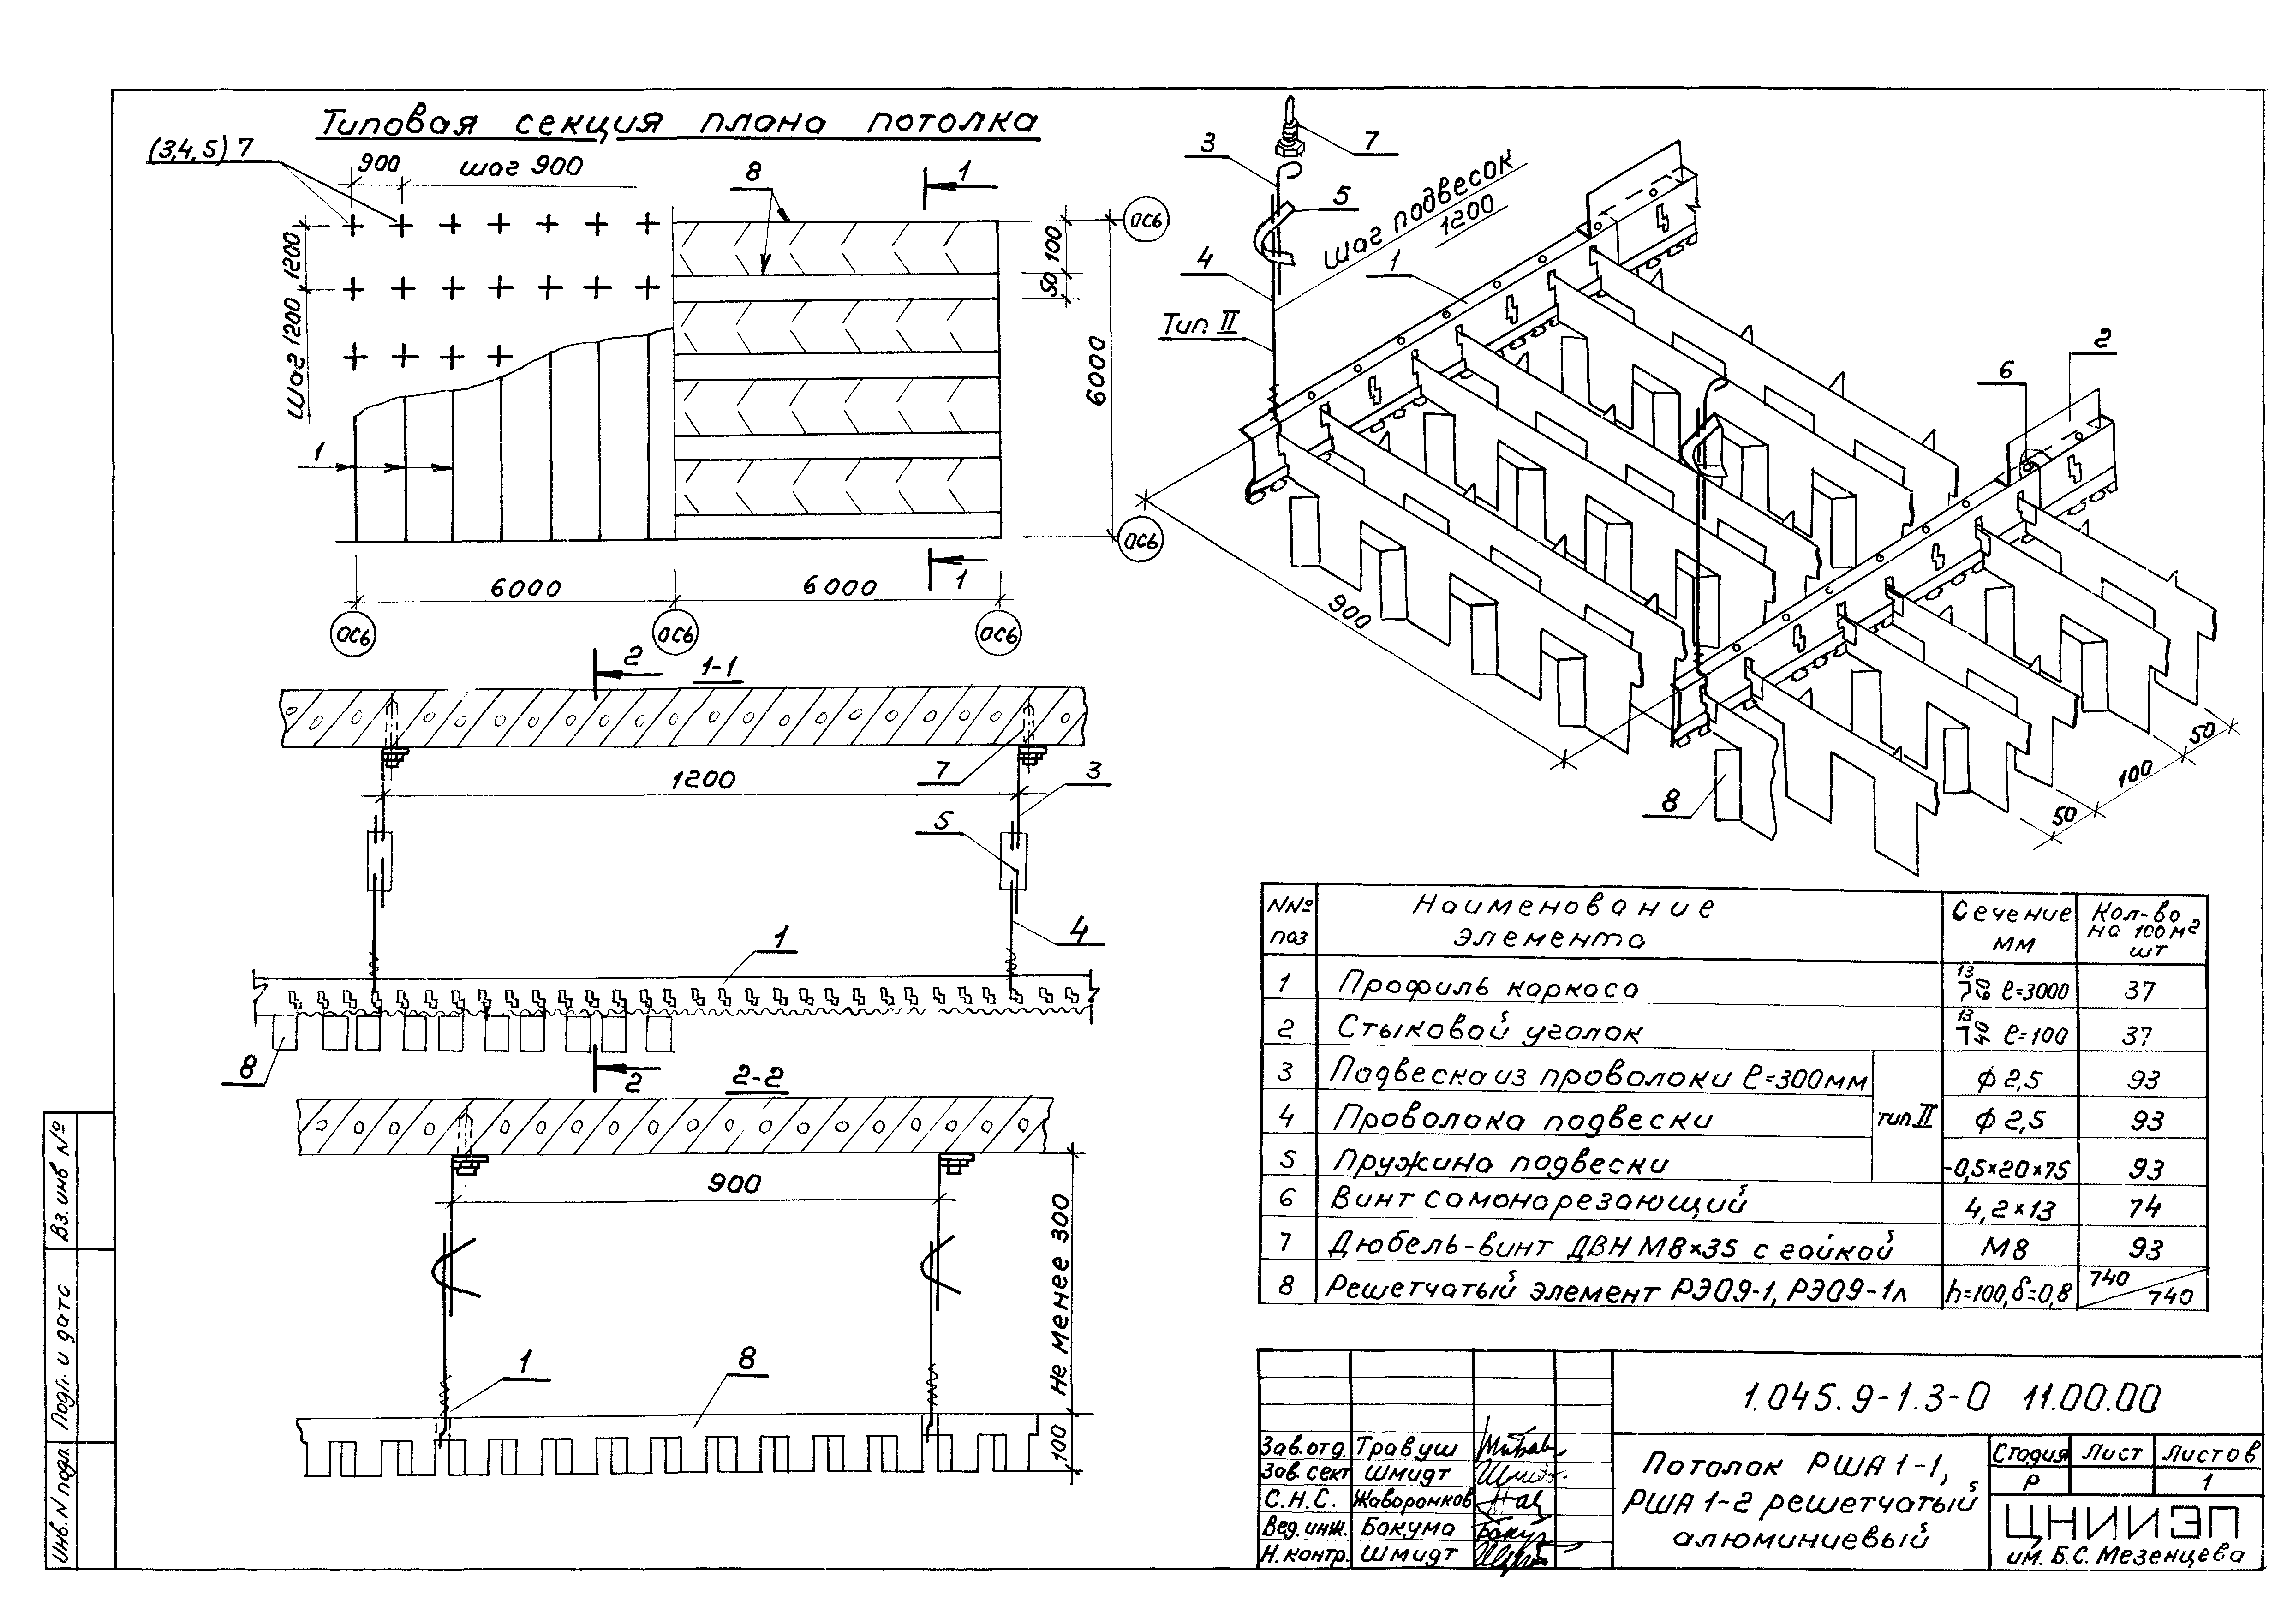 Типовая секция плана потолка
(3,4,5) 7
900
шаг 900
8
1
ось
1200
шаг 1200
100
50
6000
1
ось
1
6000
6000
ось
ось
ось
3
7
5
шаг подвесок
1200
4
1
Тип II
2
6
900
8
50
100
50
2
1-1
1200
7
3
5
1
4
8
2
2-2
900
Не менее 300
1
8
100
NNº поз
Наименование элемента
Сечение мм
Кол-во на 100 м² шт
1 Профиль каркаса 13 60 ℓ=3000 37
2 Стыковой уголок 13 40 ℓ=100 37
3 Подвеска из проволоки ℓ=300мм тип II ϕ 2,5 93
4 Проволока подвески ϕ 2,5 93
5 Пружина подвески -0,5×20×75 93
6 Винт самонарезающий 4,2×13 74
7 Дюбель-винт ДВН М8×35 с гайкой М8 93
8 Решетчатый элемент РЭ09-1, РЭ09-1л h=100, δ=0,8 740/740
1.045.9-1.3-0 11.00.00
Зав.отд. Травуш
Зав. сект Шмидт
С.Н.С. Жаворонков
Вед. инж. Бакума
Н. контр. Шмидт
Потолок РША 1-1,
РША 1-2 решетчатый
алюминиевый
Стадия Лист Листов
Р 1
ЦНИИЭП
им. Б.С. Мезенцева
Вз. инв Nº
Подп. и дата
Инв. N подл.